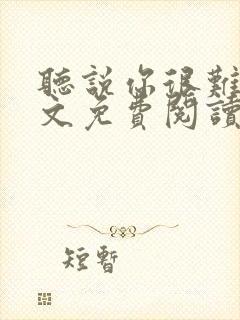 聽說你很難
文免費閱讀
短暫